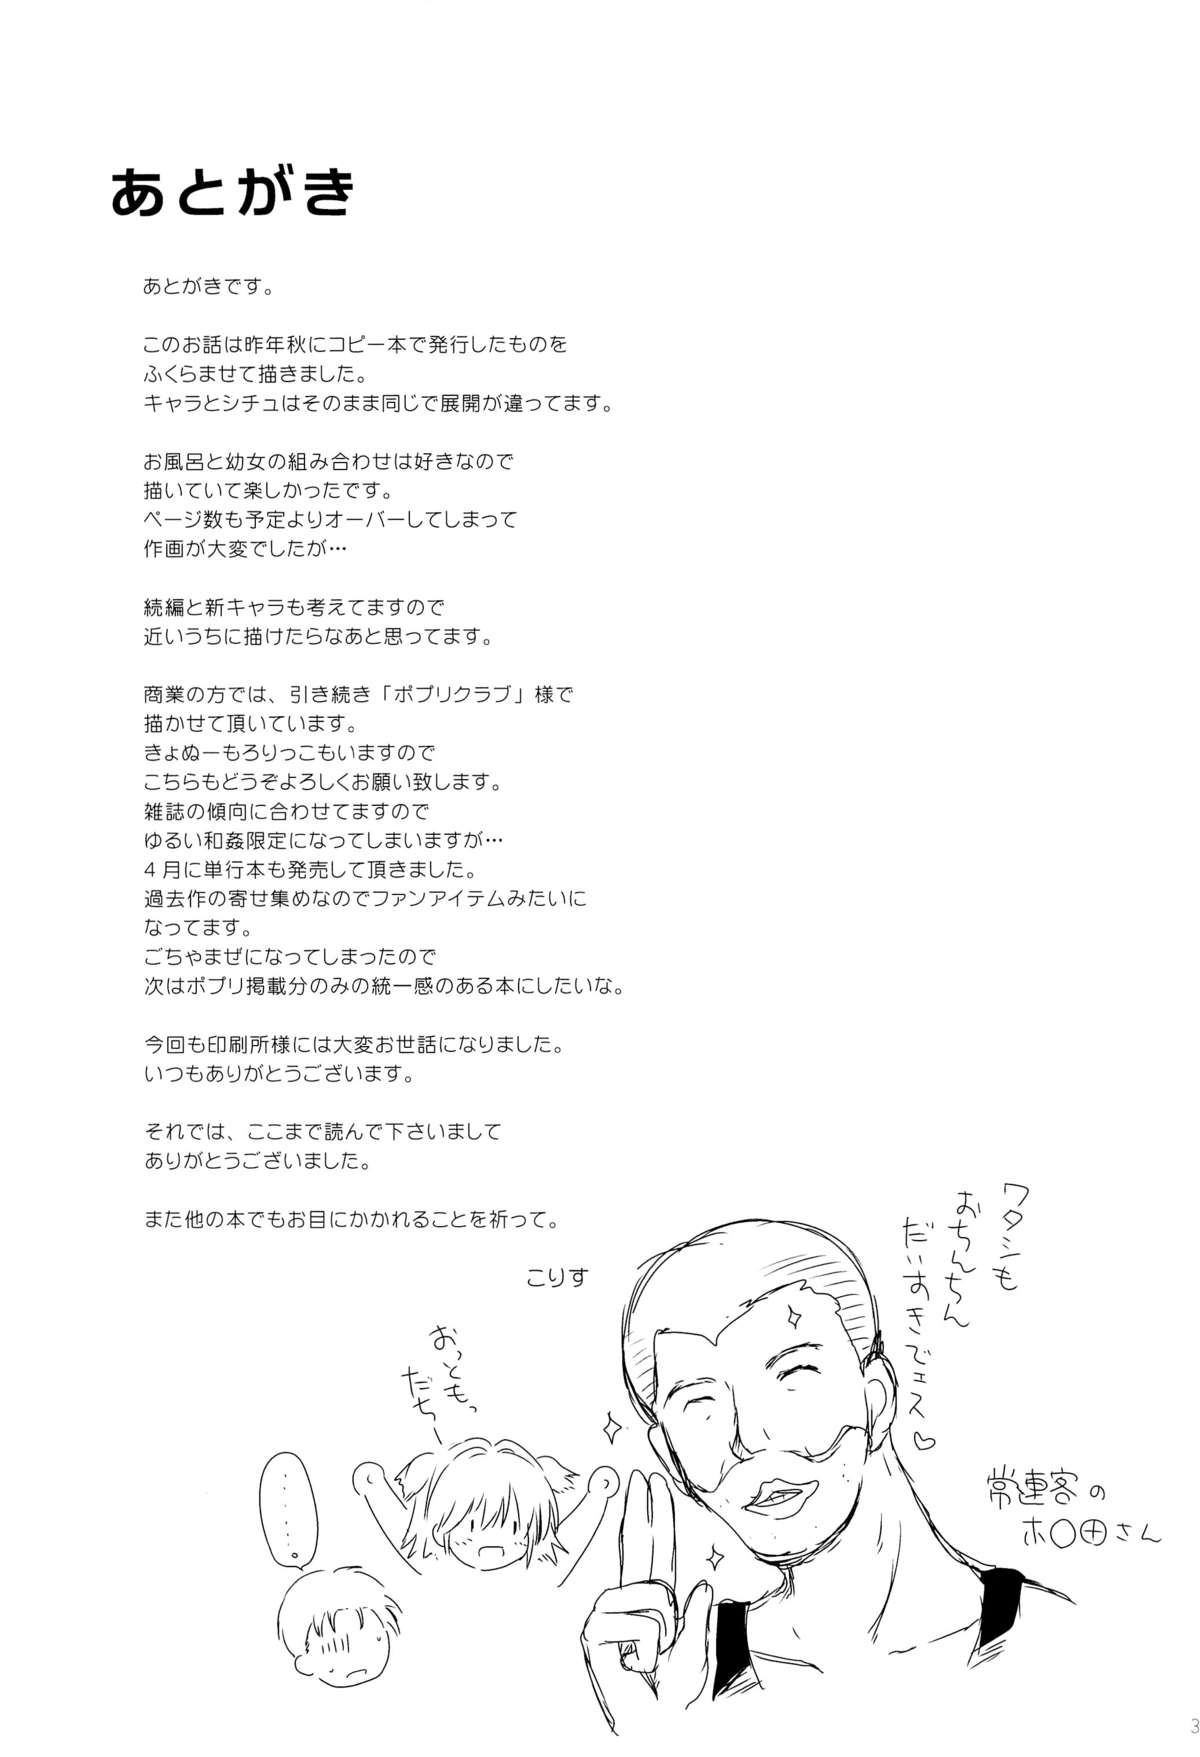 あとがき
あとがきです。
このお話は昨年秋にコピー本で発行したものを
ふくらませて描きました。
キャラとシチュはそのまま同じで展開が違ってます。
お風呂と幼女の組み合わせは好きなので
描いていて楽しかったです。
ページ数も予定よりオーバーしてしまって
作画が大変でしたが…
続編と新キャラも考えてますので
近いうちに描けたらなあと思ってます。
商業の方では、引き続き「ポプリクラブ」様で
描かせて頂いています。
きょぬーもろりっこもいますので
こちらもどうぞよろしくお願い致します。
雑誌の傾向に合わせてますので
ゆるい和姦限定になってしまいますが…
4月に単行本も発売して頂きました。
過去作の寄せ集めなのでファンアイテムみたいに
なってます。
ごちゃまぜになってしまったので
次はポプリ掲載分のみの統一感のある本にしたいな。
今回も印刷所様には大変お世話になりました。
いつもありがとうございます。
それでは、ここまで読んで下さいまして
ありがとうございました。
また他の本でもお目にかかれることを祈って。
こりす
ワタシも
おちんちん
だいすきでェス♡
おっともっ
だちー
……。
常連客の
ホ〇田さん
3